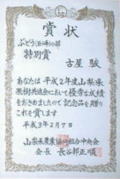 賞状
ぶどう(巨峰)の部
特別賞
古屋 駿
あなたは平成2年度山梨県
果樹共進会において優秀な成績
をおさめましたので記念品を贈り
これを賞します
平成3年2月7日
山梨県農業協同組合中央会
会長 長谷部正